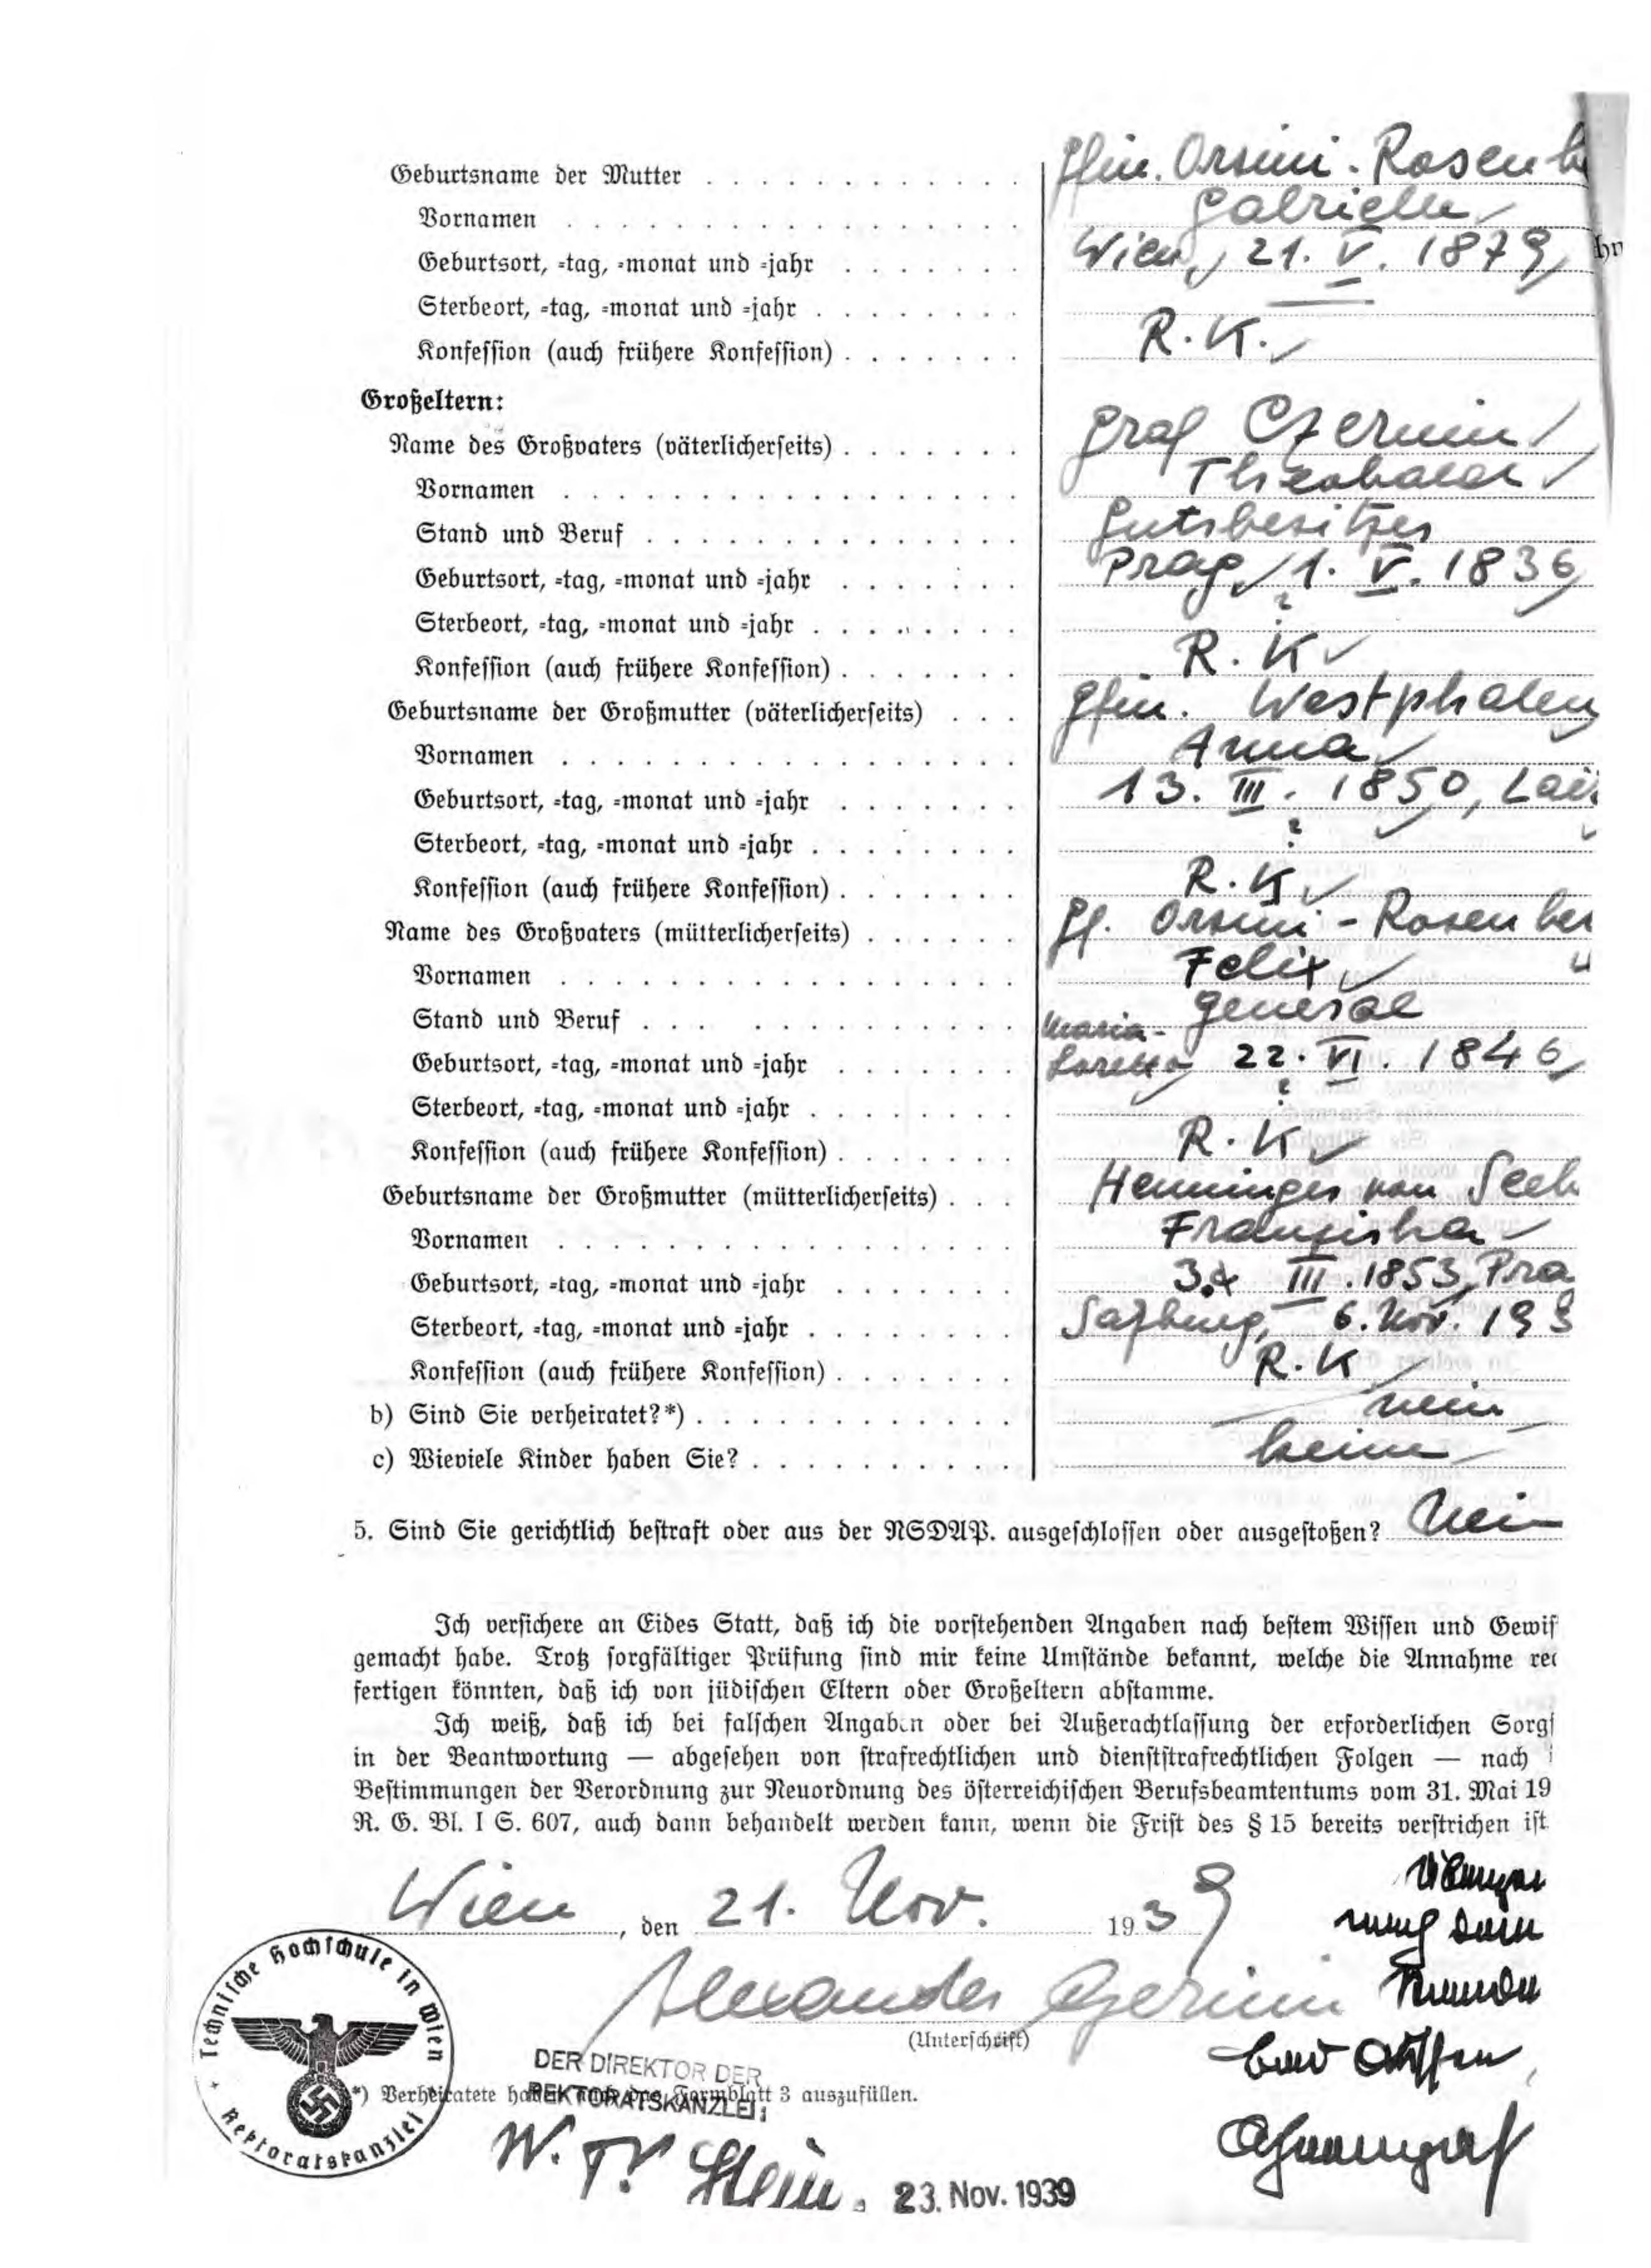 Geburtsname der Mutter . . . . . . . . . . . . Gfin. Orsini-Rosenb
Vornamen . . . . . . . . . . . . . . . . . Gabrielle
Geburtsort, =tag, =monat und =jahr . . . . . . . Wien, 21. V. 1879
hr
Sterbeort, =tag, =monat und =jahr . . . . . . . . —
Konfession (auch frühere Konfession) . . . . . . . R. K.
Großeltern:
Name des Großvaters (väterlicherseits) . . . . . . . Graf Czernin
Vornamen . . . . . . . . . . . . . . . . . Theobald
Stand und Beruf . . . . . . . . . . . . . . Gutsbesitzer
Geburtsort, =tag, =monat und =jahr . . . . . . . Prag, 1. V. 1836
Sterbeort, =tag, =monat und =jahr . . . . . . . . ?
Konfession (auch frühere Konfession) . . . . . . . R. K
Geburtsname der Großmutter (väterlicherseits) . . . Gfin. Westphalen
Vornamen . . . . . . . . . . . . . . . . . Anna
Geburtsort, =tag, =monat und =jahr . . . . . . . 13. III. 1850,
Sterbeort, =tag, =monat und =jahr . . . . . . . . ?
Konfession (auch frühere Konfession) . . . . . . . R. K
Name des Großvaters (mütterlicherseits) . . . . . . Gf. Orsini-Rosenber
Vornamen . . . . . . . . . . . . . . . . . Felix
Stand und Beruf . . . . . . . . . . . . . General
Geburtsort, =tag, =monat und =jahr . . . . . . . Maria-Loretto 22. VI. 1846
Sterbeort, =tag, =monat und =jahr . . . . . . . . ?
Konfession (auch frühere Konfession) . . . . . . . R. K
Geburtsname der Großmutter (mütterlicherseits) . . . Henninger von Seeb
Vornamen . . . . . . . . . . . . . . . . . Franziska
Geburtsort, =tag, =monat und =jahr . . . . . . . III. 1853, Pra
Sterbeort, =tag, =monat und =jahr . . . . . . . . Salzburg, 6. Nov. 193
Konfession (auch frühere Konfession) . . . . . . . R. K
b) Sind Sie verheiratet?*) . . . . . . . . . . . . nein
c) Wieviele Kinder haben Sie? . . . . . . . . . . keine
5. Sind Sie gerichtlich bestraft oder aus der NSDAP. ausgeschlossen oder ausgestoßen? Nein
Ich versichere an Eides Statt, daß ich die vorstehenden Angaben nach bestem Wissen und Gewis
gemacht habe. Trotz sorgfältiger Prüfung sind mir keine Umstände bekannt, welche die Annahme rec
fertigen könnten, daß ich von jüdischen Eltern oder Großeltern abstamme.
Ich weiß, daß ich bei falschen Angaben oder bei Außerachtlassung der erforderlichen Sorgf
in der Beantwortung — abgesehen von strafrechtlichen und dienststrafrechtlichen Folgen — nach
Bestimmungen der Verordnung zur Neuordnung des österreichischen Berufsbeamtentums vom 31. Mai 19
R. G. Bl. I S. 607, auch dann behandelt werden kann, wenn die Frist des § 15 bereits verstrichen ist
Wien, den 21. Nov. 1939
Alexander Czernin
(Unterschrift)
Technische Hochschule in Wien
Rektoratskanzlei
DER DIREKTOR DER
REKTORATSKANZLEI:
*) Verheiratete haben Formblatt 3 auszufüllen.
23. Nov. 1939